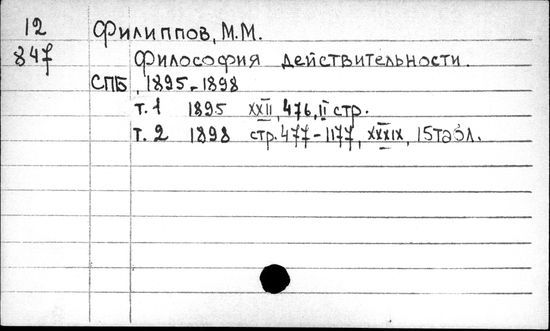 12 Филиппов, М.М.
847 Философия действительности.
СПБ, 1895-1898
т. 1 1895 XXII, 476, II стр.
т. 2 1898 стр. 477-1177, XXXIX, 15 табл.